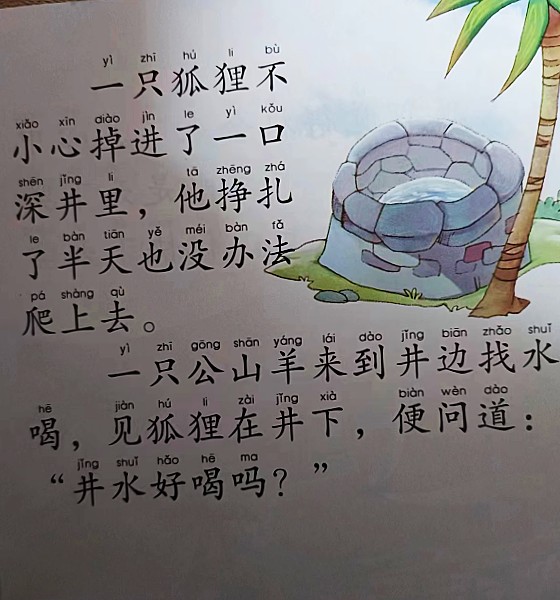 yì zhī hú li bù
一只狐狸不
xiǎo xīn diào jìn le yì kǒu
小心掉进了一口
shēn jǐng li tā zhēng zhá
深井里，他挣扎
le bàn tiān yě méi bàn fǎ
了半天也没办法
pá shàng qù
爬上去。
yì zhī gōng shān yáng lái dào jǐng biān zhǎo shuǐ
一只公山羊来到井边找水
hē jiàn hú li zài jǐng xià biàn wèn dào
喝，见狐狸在井下，便问道：
jǐng shuǐ hǎo hē ma
“井水好喝吗？”